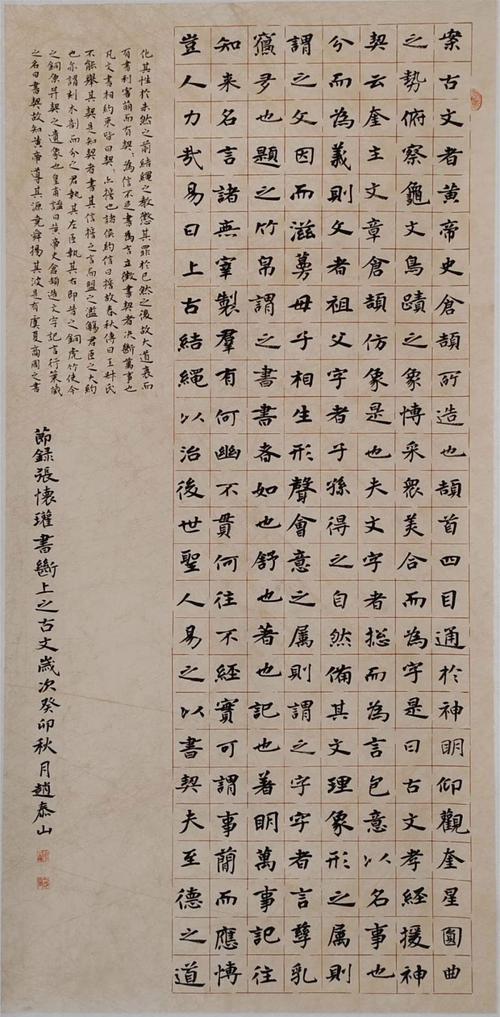 案古文者黃帝史倉頡所造也頡首四目通於神明仰觀奎星圓曲
之勢俯察龜文鳥蹟之象博采眾美合而為字是曰古文孝經援神
契云奎主文章倉頡仿象是也夫文字者総而為言包意以名事也
分而為義則文者祖父字者子孫得之自然備其文理象形之属則
謂之文因而滋蔓母子相生形聲會意之属則謂之字字者言孳乳
寖多也題之竹帛謂之書書者如也舒也著也記也著明萬事記往
知来名言諸無宰製羣有何幽不貫何往不經實可謂事簡而應博
豈人力哉易曰上古結繩以治後世聖人易之以書契夫至德之道
化其性於未然之前結繩之教懲其罪於已然之後故大道衰而
有書利害萌而有契〻為信不足書為言立徵書契者決斷萬事也
凡文書相約束皆曰契〻誓也諸侯約信曰誓故春秋傳曰王叔氏
不能舉其契是知契者書其信誓之言而盟之滥觴君臣之大約
也亦謂刻木剖而分之君執其左臣執其右即昔之銅虎竹使今
之銅魚并契之遺象也皇甫謐曰黃帝史倉頡造文字記言行策藏
之名曰書契故知黃帝導其源堯舜揚其波是有虞夏商周之書
節録張懷瓘書斷上之古文歲次癸卯秋月趙泰山